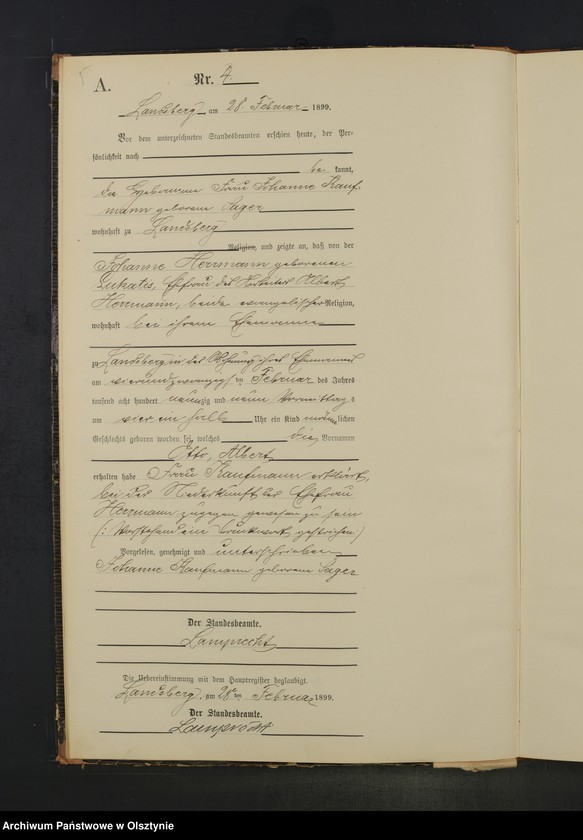 A.
Nr. 4.
Landsberg am 28. Februar 1899.
Vor dem unterzeichneten Standesbeamten erschien heute, der Per-
sönlichkeit nach
be kannt,
die Frau Johanne Kauf-
mann geborene Sager
wohnhaft zu Landsberg
Religion, und zeigte an, daß von der
Johanne Herrmann geborenen
Lukatis, Ehefrau des Arbeiters Albert
Herrmann, beide evangelischer Religion,
wohnhaft bei ihrem Ehemanne
zu Landsberg in der Wohnung ihres Ehemannes
am vierundzwanzigsten Februar des Jahres
tausend acht hundert neunzig und neun Vormittags
um vier ein halb Uhr ein Kind männlichen
Geschlechts geboren worden sei, welches die Vornamen
Otto, Albert
erhalten habe. Frau Kaufmann erklärt,
bei der Niederkunft der Ehefrau
Herrmann zugegen gewesen zu sein
(: Vorstehend ein Druckwort gestrichen :)
Vorgelesen, genehmigt und unterschrieben
Johanne Kaufmann geborene Sager
Der Standesbeamte.
Lamprecht
Die Uebereinstimmung mit dem Hauptregister beglaubigt.
Landsberg, am 28ten Februar 1899.
Der Standesbeamte.
Lamprecht
Archiwum Państwowe w Olsztynie